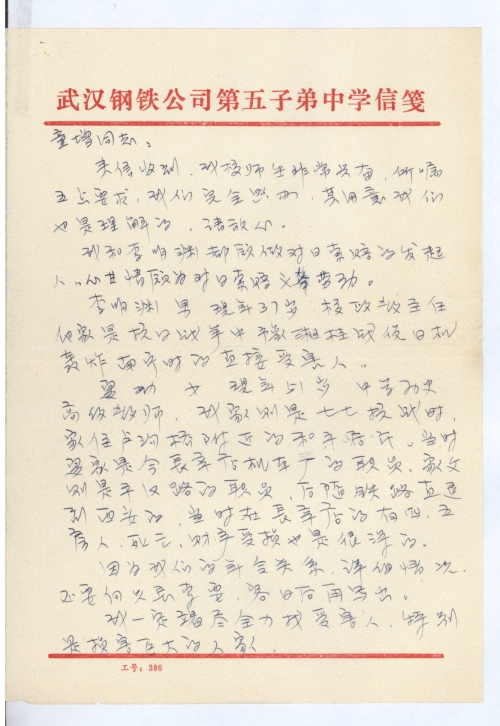 武汉钢铁公司第五子弟中学信笺
童增同志：
来信收到，我校师生非常兴奋，所嘱
五点要求，我们完全照办，其用意我们
也是理解的，请放心。
我和李明渊都愿做对日索赔的发起
人，心甘情愿为对日索赔义务劳动。
李明渊 男 现年37岁 校政教主任
他家是抗日战争中 豫湘桂战役日机
轰炸 时的直接受害人。
 女 现年51岁 中学历史
高级教师，我家则是七七抗战时，
家住卢沟桥附近的和平居民，当时
家是今长辛店机车厂的职员，家父
则是平汉路的职员，后随铁路直
到西安的，当时在长辛店的
人死亡，财产受损也是很深的。
因为我们的年令关系，详细情况，
还要向父辈，容日后再写出。
我一定竭尽全力找受害人，特别
是损害巨大的人家。
工号：386